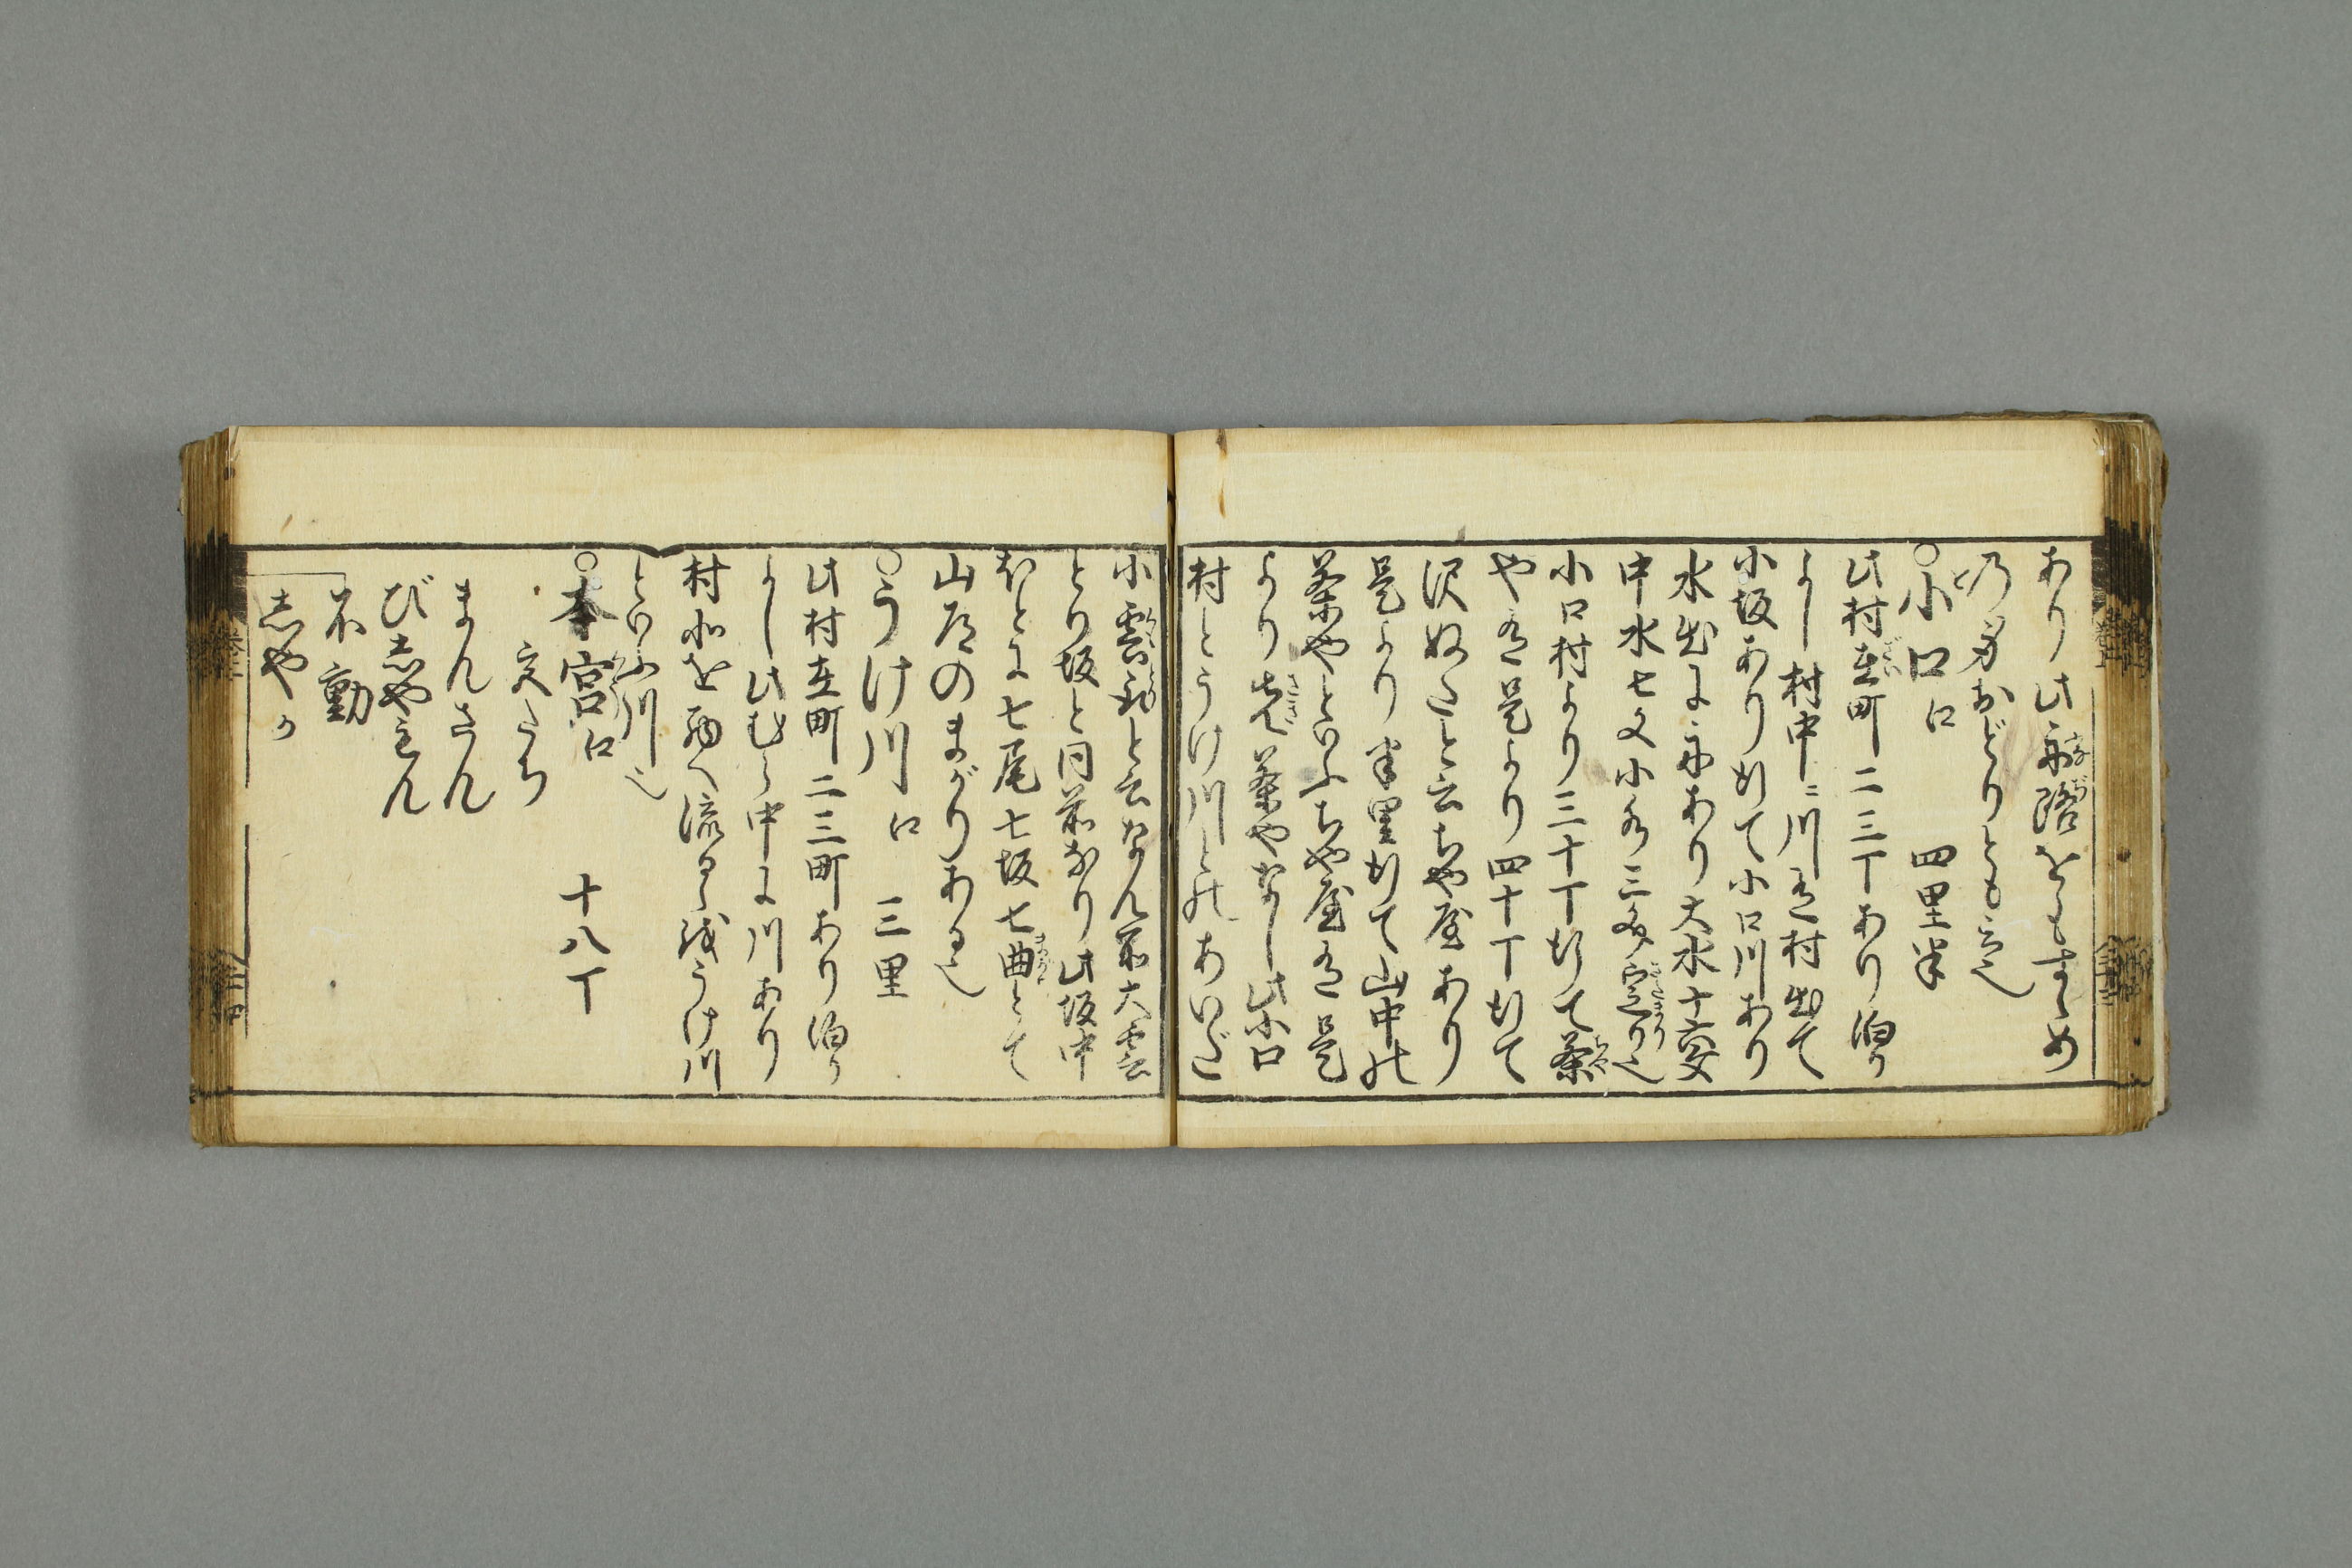 あり此舟路をらもすゝめ
乃身おどりとも云也
○小口口　四里半
此村在町二三丁あり泊り
よし村中ニ川有村出て
小坂あり行て小口川あり
水出に舟あり大水十六文
中水七文小水三文定り也
小口村より三十丁行て茶
や有是より四十丁行て
沢ぬたと云ちや屋あり
是より半里行て山中の
茶やといふちや屋有是
より先茶やなし此小口
村とうけ川とのあいだ
小雲取と云なん所大雲
とり坂と同前なり此坂中
ほとに七尾七坂七曲とて
山道のまがりある也
○うけ川口　三里
此村在町二三町あり泊り
よし此むら中に川あり
村水を西へ流るゝ故うけ川
といふ川也
○本宮口　十八丁
まんさん
びしやもん
不動
しやか